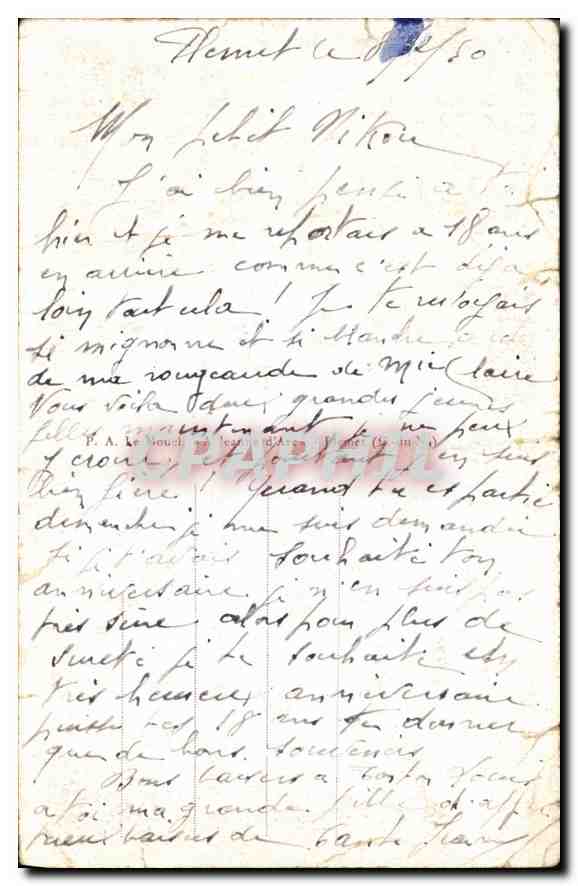 Plemet le 8/2/50
Mon petit
J'ai bien pensé à toi
hier et je me reportais à 18 ans
en arrière comme c'est déjà
loin tout cela ! Je te voyais
si mignonne et si blanche à côté
de ma rougeaude de Mie Claire
Vous voilà deux grandes jeunes
filles maintenant je ne peux
P. A. Le Jeanne d'Arc Plemet
y croire et pourtant j'en suis
bien fière ! Quand tu es partie
dimanche je me suis demandée
si je t'avais souhaité ton
anniversaire je n'en suis pas
très sûre alors pour plus de
sûreté je te souhaite un
très heureux anniversaire
puisse tes 18 ans te donner
que de bons souvenirs
Bons baisers à Tonton
à toi ma grande fille d'affec
tueux baisers de Tante
CPAPHIL